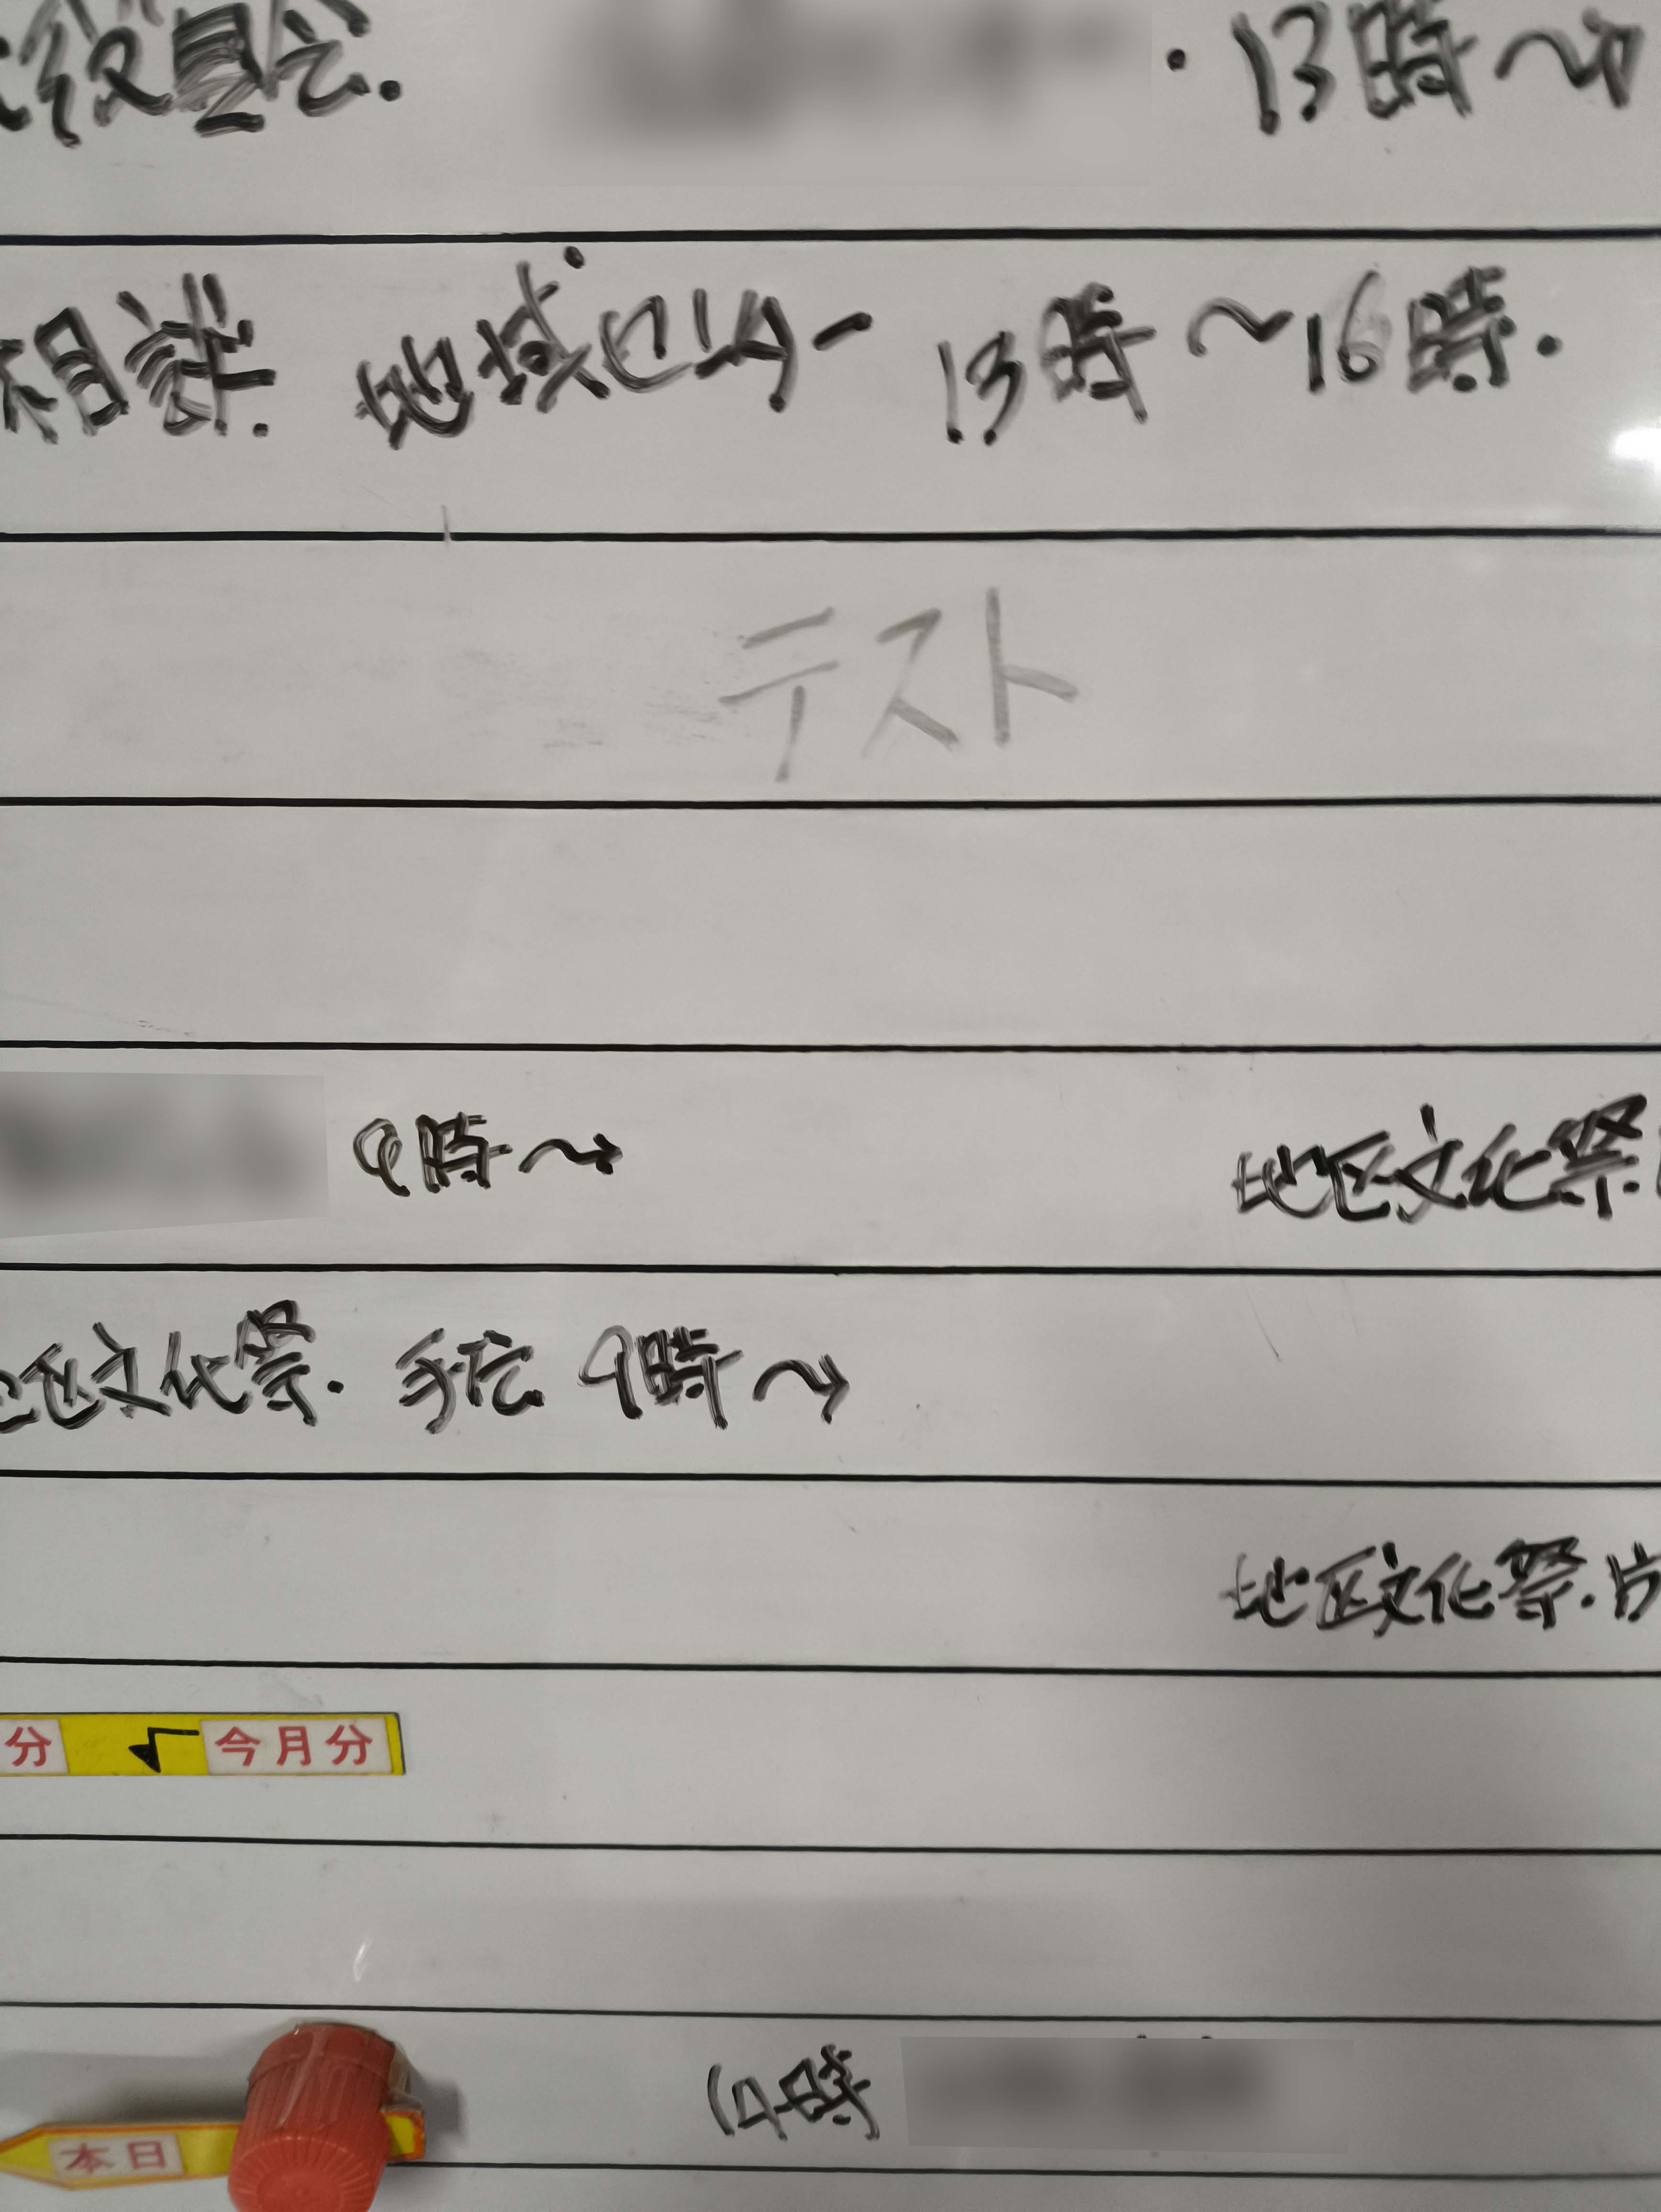 役員会. ・13時〜
相談. 地域センター 13時〜16時.
テスト
9時〜 地区文化祭.
地区文化祭. 手伝 9時〜
地区文化祭.片
分 今月分
14時
本日